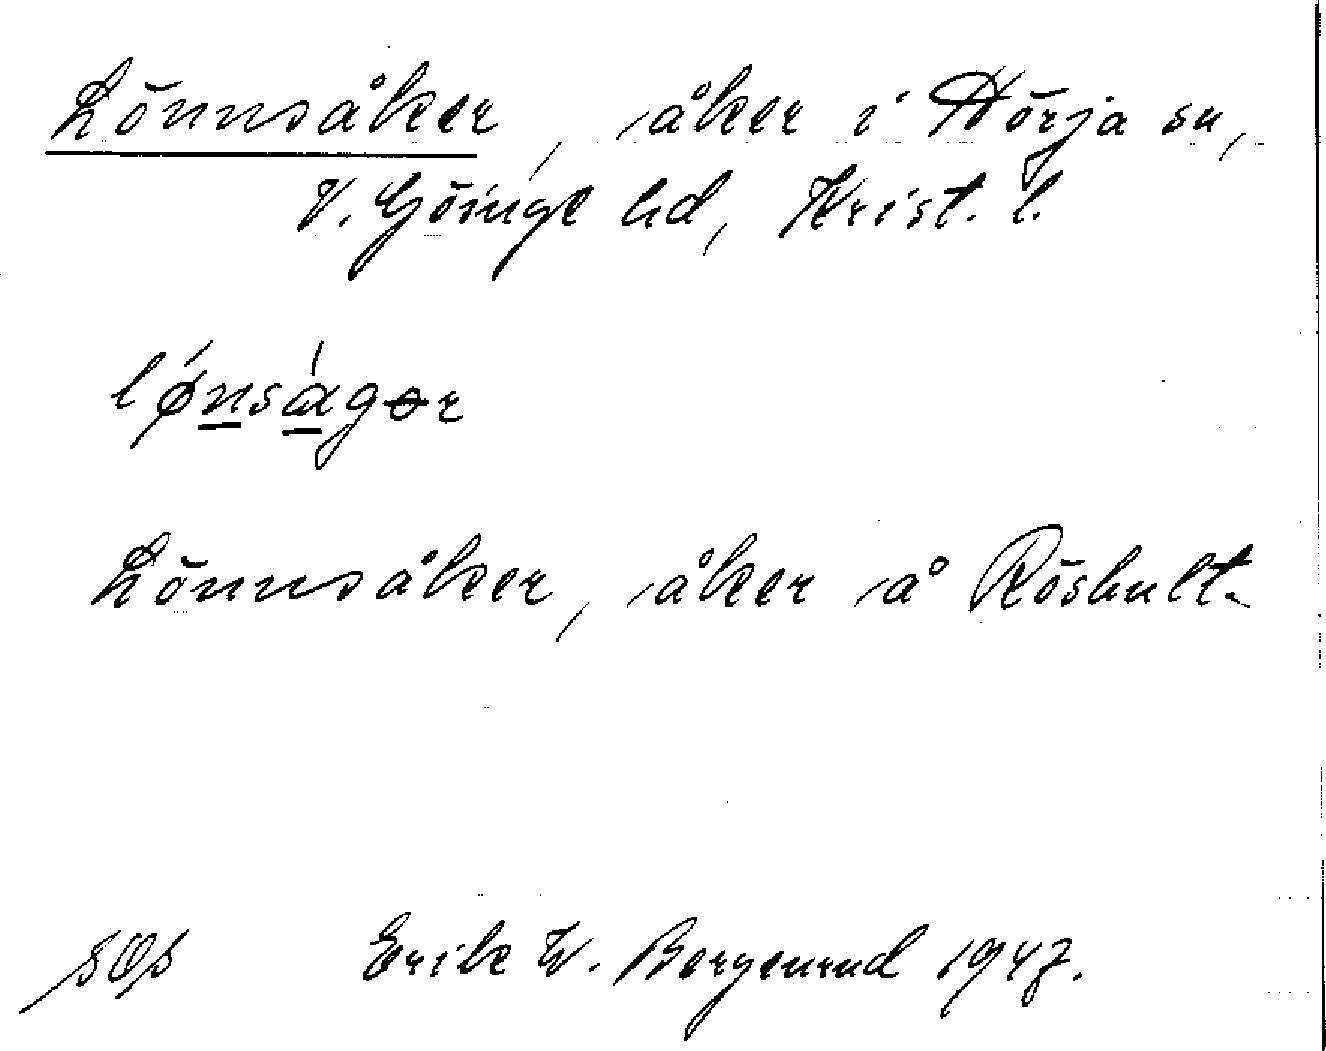 Lönnsåker, åker i Hörja sn,
V. Göinge hd, Krist. l.
lǿnsàgər
Lönnsåker, åker å Röshult.
SOS Erik W. Bergenrud 1947.